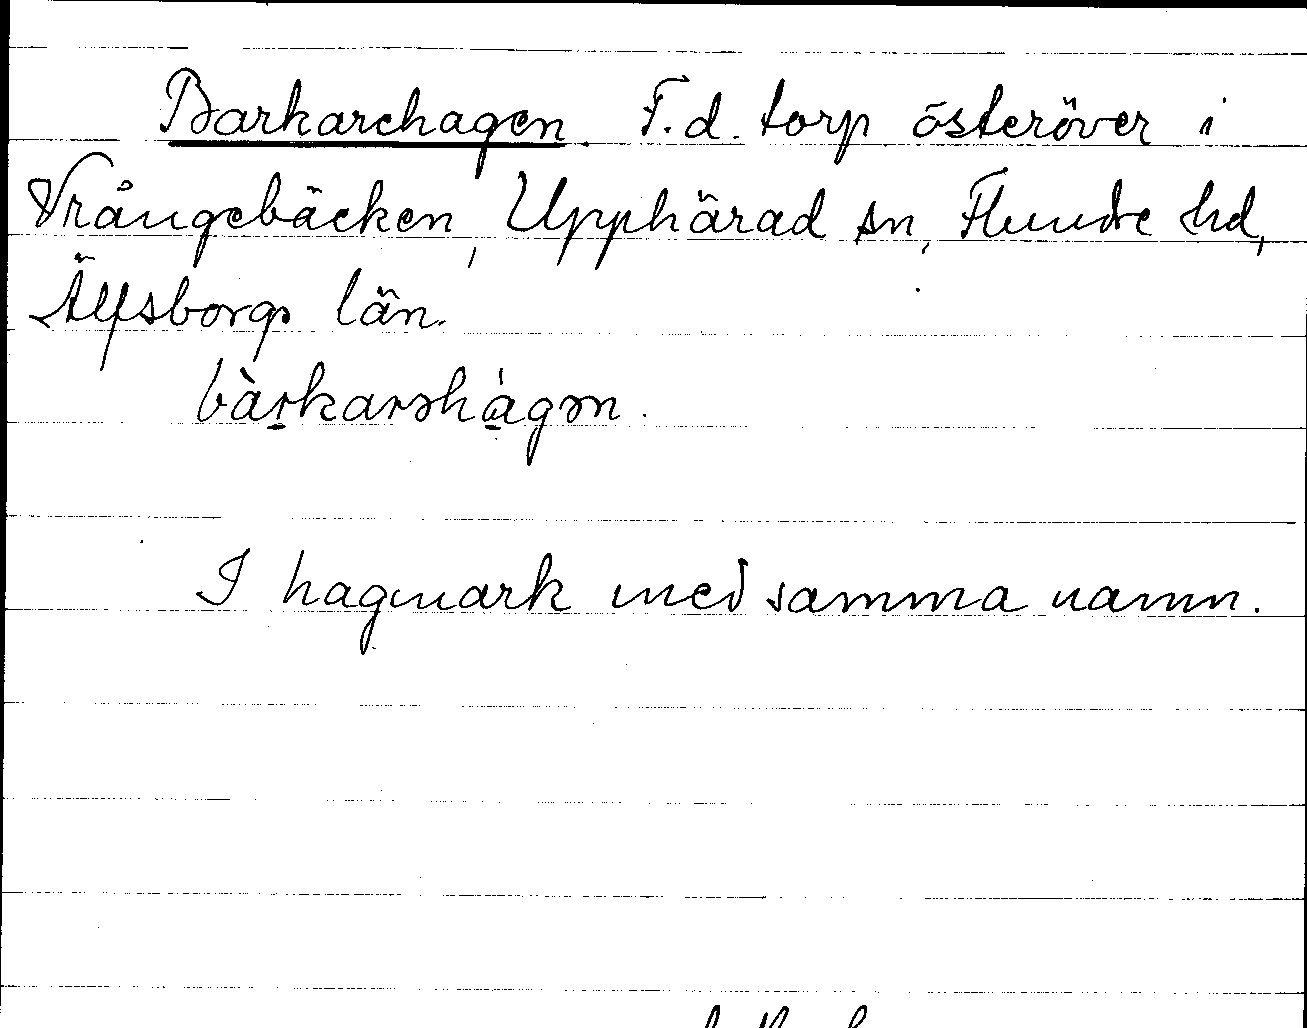 Barkarehagen. F.d. torp österöver i
Vrångebäcken, Upphärad sn, Flundre hd,
Älfsborgs län.
bàrkarəhágən.
I hagmark med samma namn.